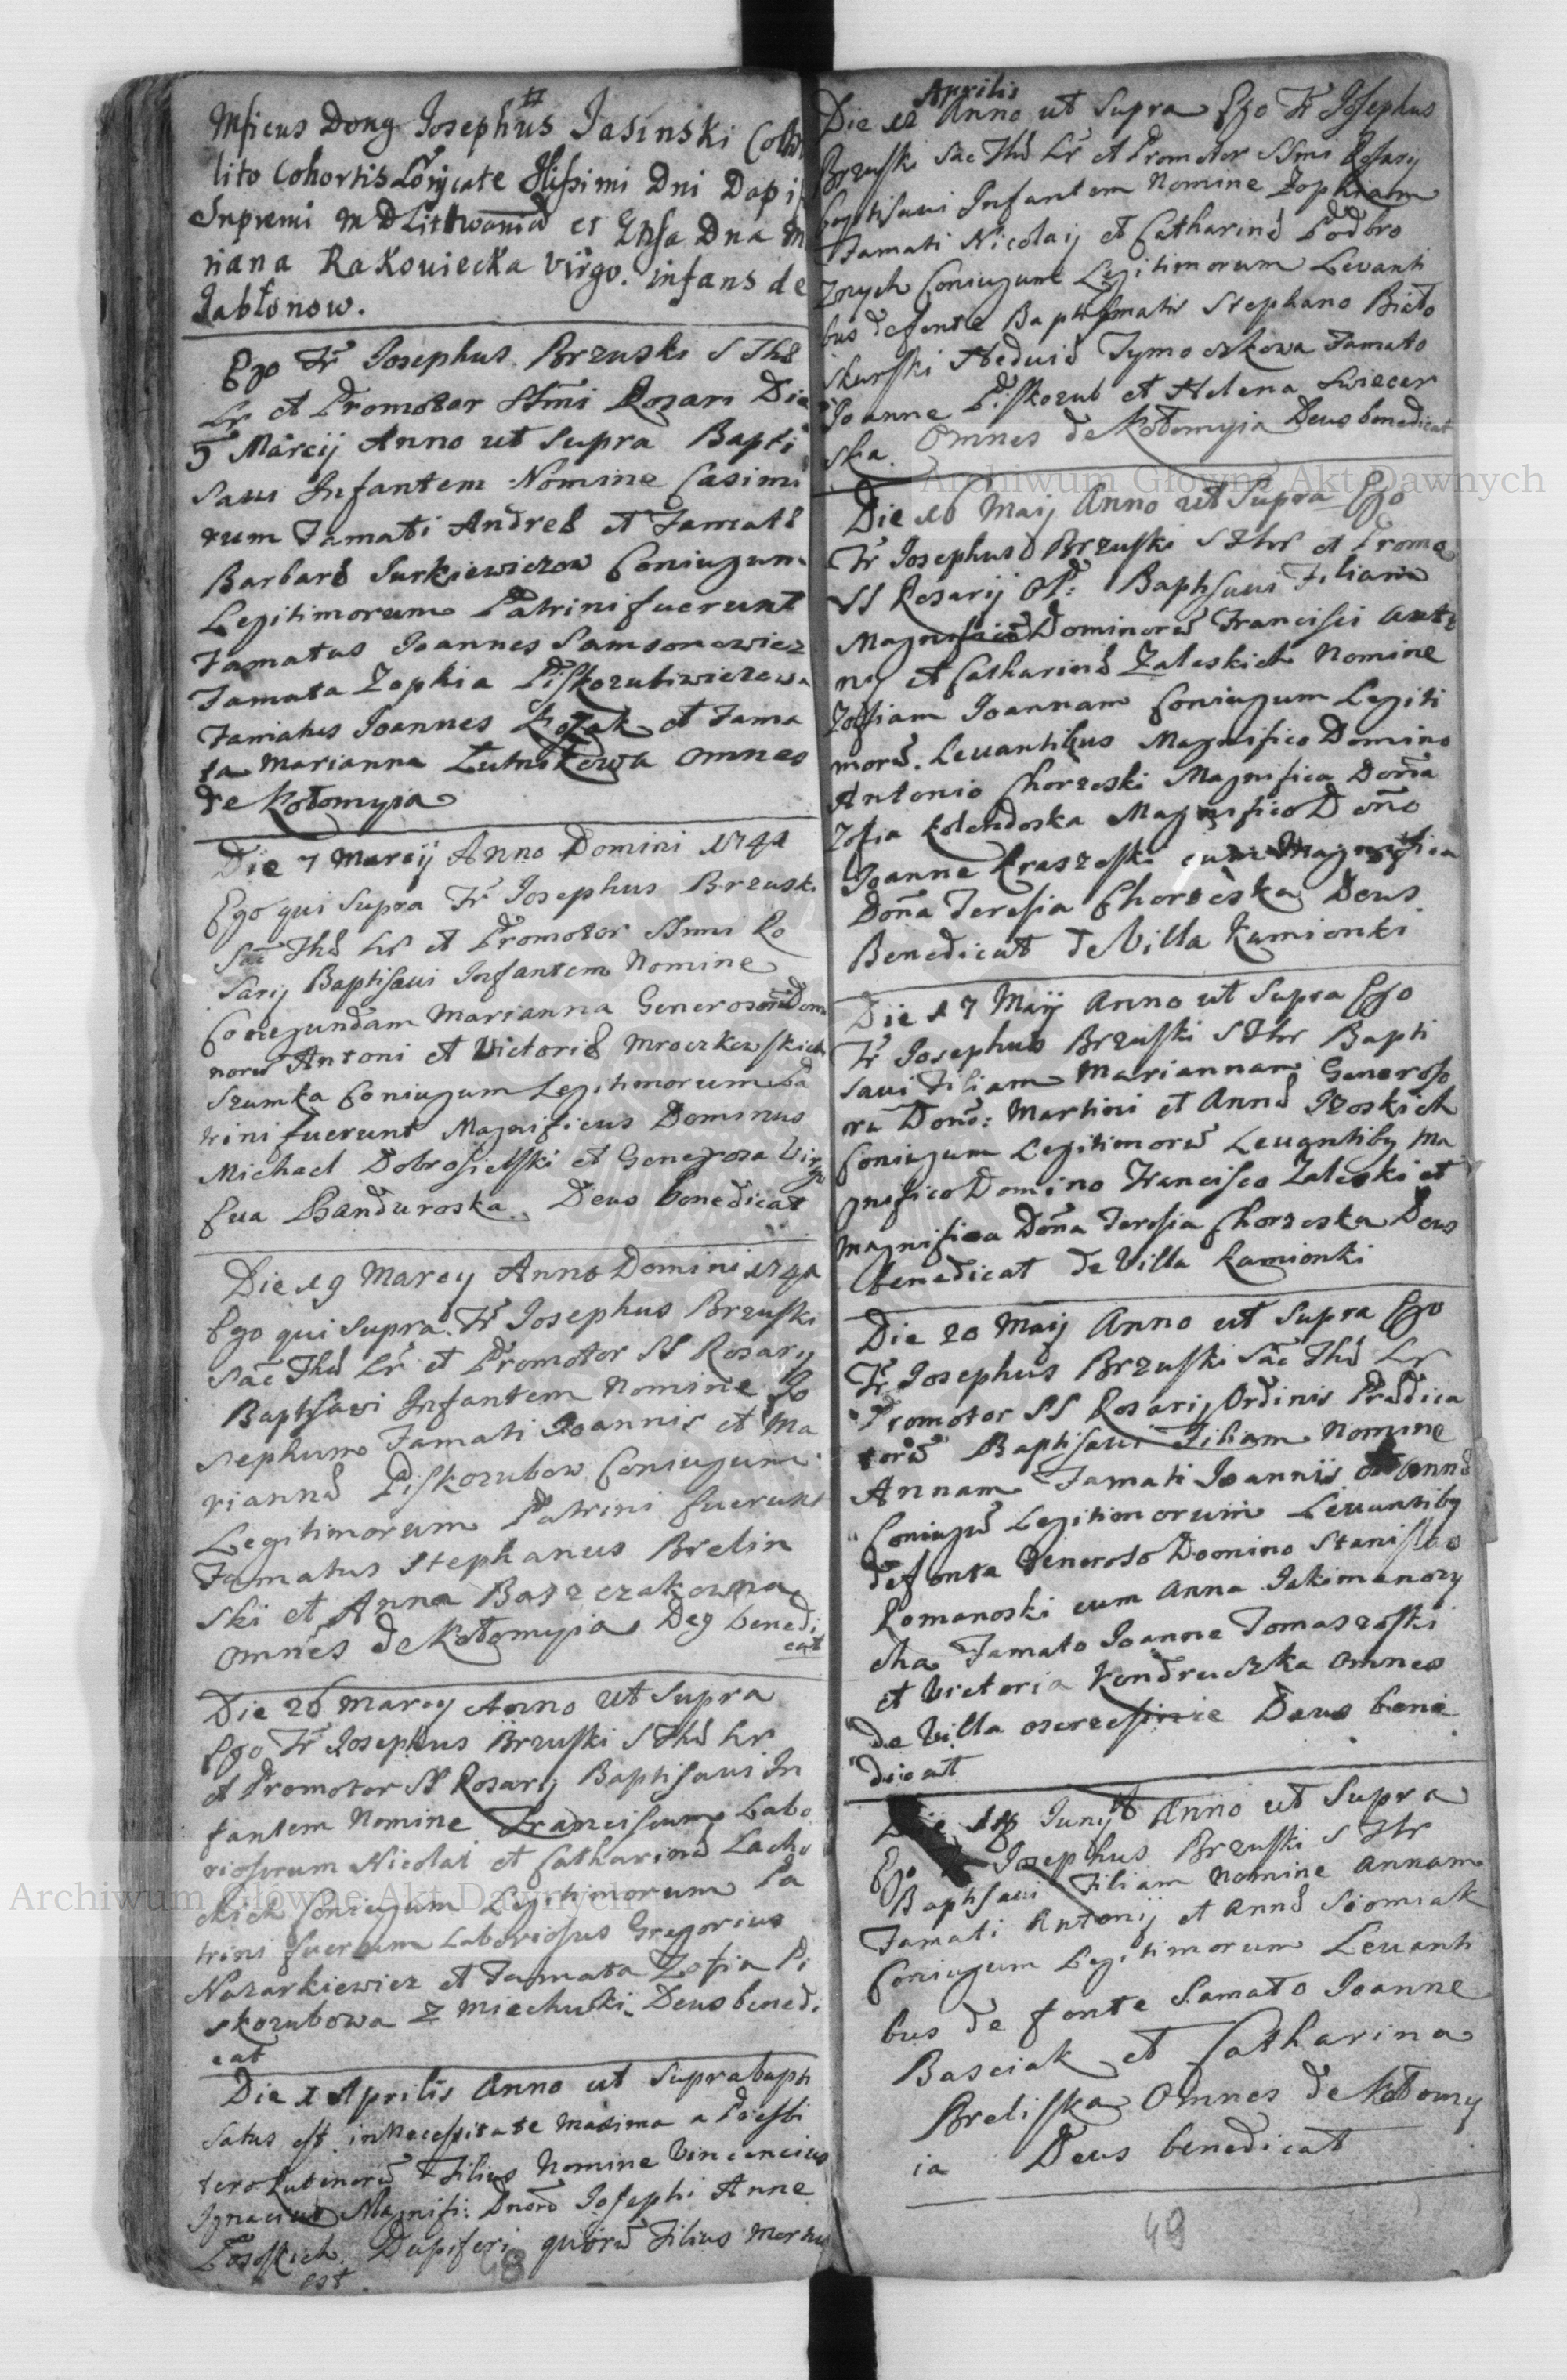 Mficus Dong Josephus Jasinski
lito Cohortis Loricate Illssimi Dni Dapi
Supremi M D Litthwaniae et Gnsa Dna M
riana Rakowiecka virgo. infans de
Jabłonow.
Ego Fr Josephus Brzuski S Thae
Lr et Promotor SSmi Rosari Die
5 Marcij Anno ut Supra Bapti
saui Infantem Nomine Casimi
rum Famati Andreae et Famatae
Barbarae Surkiewiczow Coniugum
Legitimorum Patrini fuerunt
Famatus Joannes Samsonowicz
Famata Zophia Piskozubiwiczowa
Famatus Joannes Kozak et Fama
ta Marianna Lutnikowa omnes
de Kołomyia
Die 7 Marcij Anno Domini 1741
Ego qui Supra Fr Josephus Brzuski
Sac Thae Lr et Promotor SSmi Ro
sarij Baptisaui Infantem Nomine
Conegundam Marianna Generosorũ Domi
norũ Antoni et Victoriae Mroczkowskich
Szumka Coniugum Legitimorum Pa
trini fuerunt Magnificus Dominus
Michael Dobrosielski et Generosa Virgo
Eua Banduroska. Deus benedicat
Die 19 Marcij Anno Domini 1741
Ego qui Supra Fr Josephus Brzuski
Sac Thae Lr et Promotor SS Rosarij
Baptisavi Infantem Nomine Jo
sephum Famati Joannis et Ma
riannae Piskozubow Coniugum
Legitimorum Patrini fuerunt
Famatus Stephanus Brelin
ski et Anna Baszczakowna
omnes de Kołomyia Deg benedi
cat
Die 26 Marcij Anno ut Supra
Ego Fr Josephus Brzuski S Thae Lr
et Promotor SS Rosarij Baptisaui In
fantem Nomine Franciscum Labo
riosorum Nicolai et Catharinae Lacho
ckich Coniugum Legitimorum Pa
trini fuerum Laboriosus Gregorius
Nazarkiewicz et Famata Zofia Pi
skozubowa z Miechulki Deus benedi
cat
Die 1 Aprilis Anno ut Supra bapti
satus est in Necessitate Maxima a Presbi
tero Rutenorũ Filius Nomine Vincencius
Ignacius Magnifi: Dnorũ Josephi Anne
Dapiferi quorũ Filius Mortuus
est
48
Aprilis
Die 12 Anno ut Supra Ego Fr Josephus
Brzuski Sac Thae Lr et Promotor SSmi Rosarij
baptisaui Infantem Nomine Zophiam
Famati Nicolaij et Catharinae Podbro
znych Coniugum Legitimorum Levanti
bus de fonte Baptismatis Stephano Bieto
skurski Heduiae Tymoczkowa Famato
Joanne Piskozub et Helena Swiecer
ska. Omnes de Kołomyia Deus benedicat
Die 16 Maij Anno ut Supra Ego
Fr Josephus Brzuski S Th Lr et Promo
SS Rosarij OP: Baptisaui Filiam
Magnificorũ Dominorũ Francisci Anto
nij et Catharinae Zaleskich Nomine
Zofiam Joannam Coniugum Legiti
morũ. Leuantibus Magnifico Domino
Antonio Chorzeski Magnifica Dona
Zofia Kolendoska Magnifico Dono
Joanne Kraszeski cum Magnifica
Dona Teresia Chorzeska Deus
Benedicat de Villa Kamionki
Die 17 Maij Anno ut Supra Ego
Fr Josephus Brzuski S Th Lr Bapti
saui Filiam Mariannam Generoso
rũ Donõ: Martini et Annae Jzoskich
Coniugum Legitimorũ Leuantibg Ma
gnifico Domino Francisco Zaleski et
Magnifica Dona Teresia Chorzeska Deus
benedicat de Villa Kamionki
Die 20 Maij Anno ut Supra Ego
Fr Josephus Brzuski Sac Thae Lr
Promotor SS Rosarij Ordinis Praedica
torũ Baptisaui Filiam Nomine
Annam Famati Joannis et Annae
Coniugũ Legitimorum Leuantibg
de fonte Generoso Domino Stanislao
Romanoski cum Anna Jakimanowy
cha Famato Joanne Tomaszoski
et Victoria Kondraczka Omnes
de Villa Deus bene
dicat
Die Junij Anno ut Supra
Ego Fr Josephus Brzuski S Th Lr
Baptisaui Filiam Nomine Annam
Famati Antonij et Annae Siomiak
Coniugum Legitimorum Leuanti
bus de fonte Famato Joanne
Basciak et Catharina
Breliska Omnes de Kołomy
ia Deus benedicat
49
Archiwum Główne Akt Dawnych
Archiwum Główne Akt Dawnych